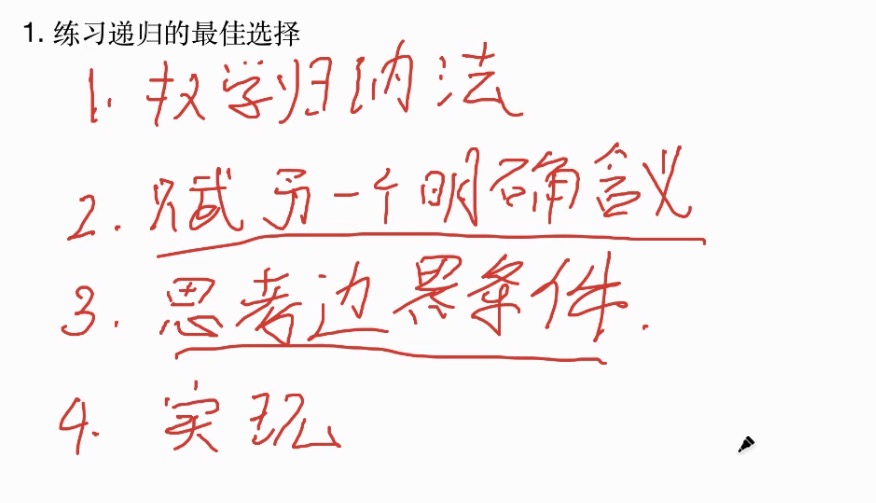 1. 练习递归的最佳选择
1. 数学归纳法
2. 赋予一个明确含义
3. 思考边界条件.
4. 实现